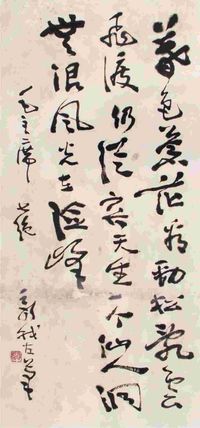 暮色苍茫看劲松乱云
飞渡仍从容天生一个仙人洞
无限风光在险峰
毛主席 七绝
左笔